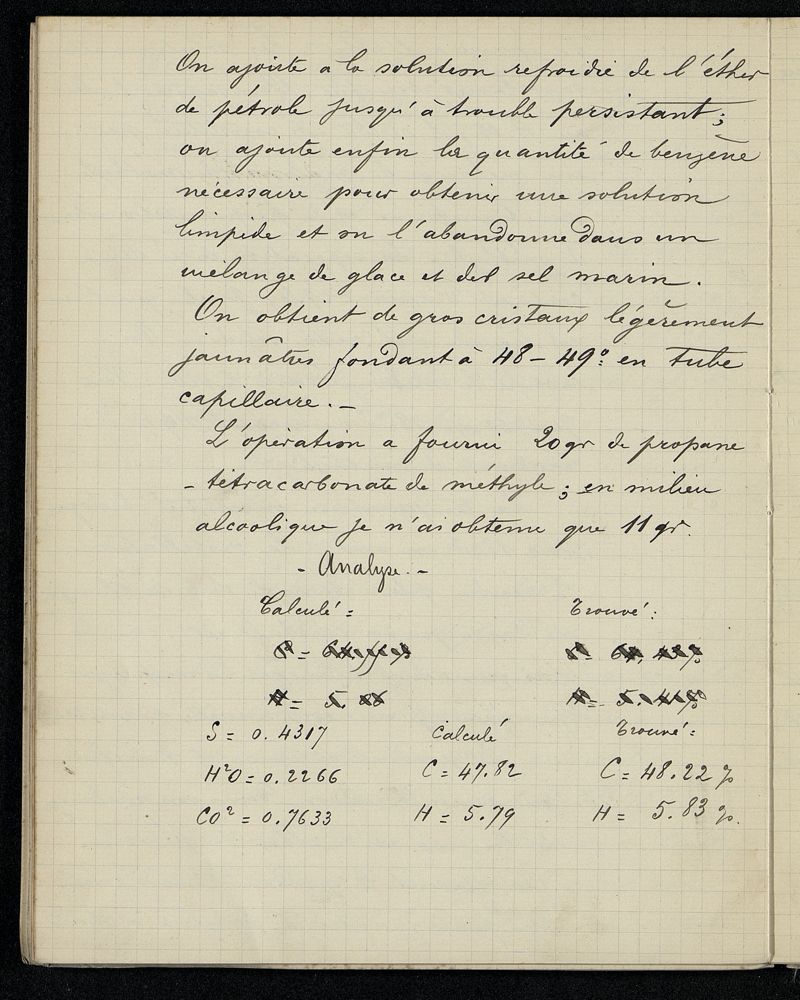 On ajoute a la solution refroidie de l'éther
de pétrole jusqu'à trouble persistant;
on ajoute enfin la quantité de benzène
nécessaire pour obtenir une solution
limpide et on l'abandonne dans un
mélange de glace et del sel marin.
On obtient de gros cristaux légèrement
jaunâtres fondant à 48-49° en tube
capillaire. -
L'opération a fourni 20 gr de propane
- tétracarbonate de méthyle; en milieu
alcoolique je n'ai obtenu que 11 gr.
- Analyse. -
Calculé = Trouvé:
H = 5. H = 5.41%
S = 0.4317 Calculé Trouvé =
H²O = 0.2266 C = 47.82 C = 48.22 %
CO² = 0.7633 H = 5.79 H = 5.83 %.